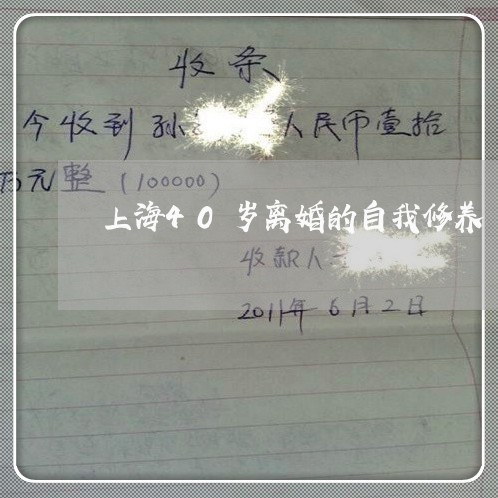 收条
今收到孙 人民币壹拾
万元整(100000)
上海40岁离婚的自我修养
收款人
2011年6月2日